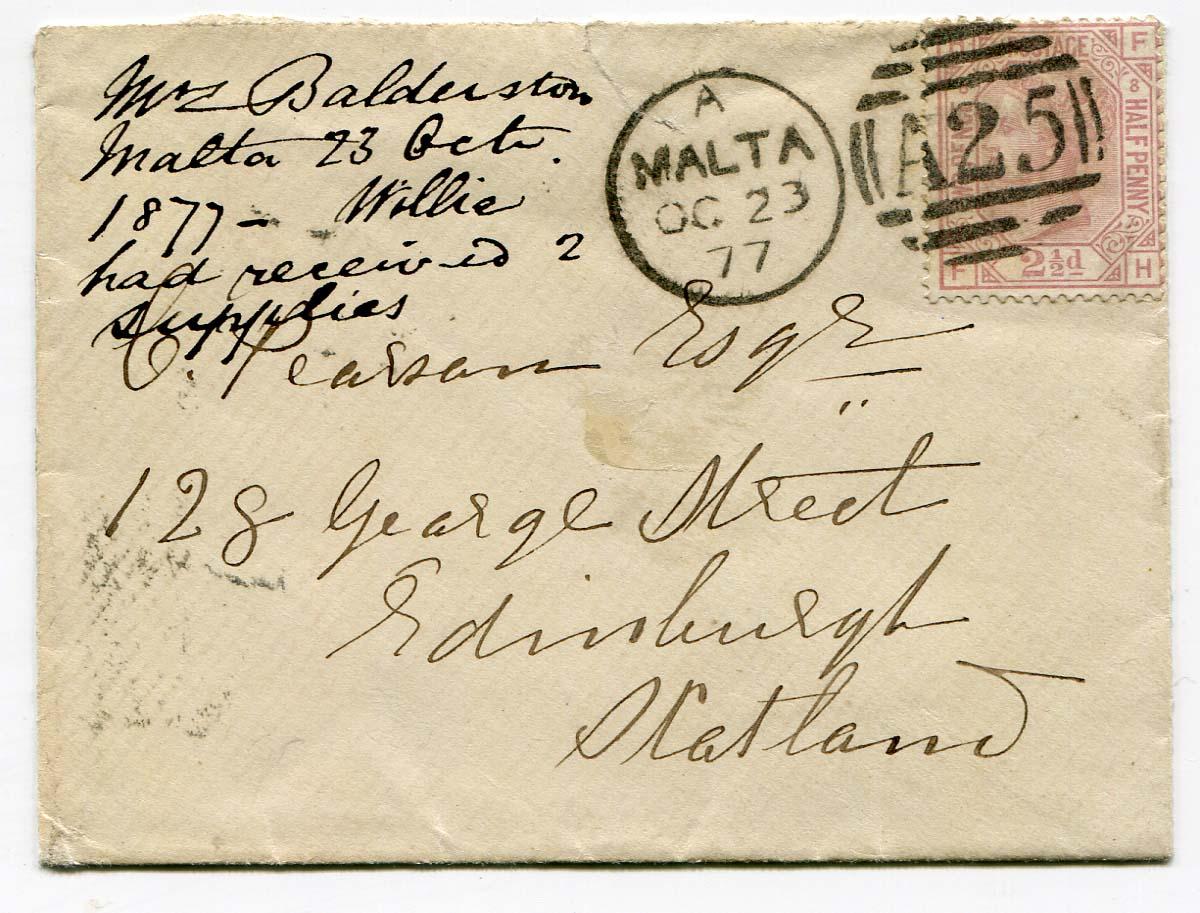 Mrs Balderston
Malta 23 Oct.
1877 - Willie
had received 2
supplies
A
MALTA
OC 23
77
A25
F
8
HALF PENNY
2½d
F H
C. Pearson Esqre
128 George Street
Edinburgh
Scotland